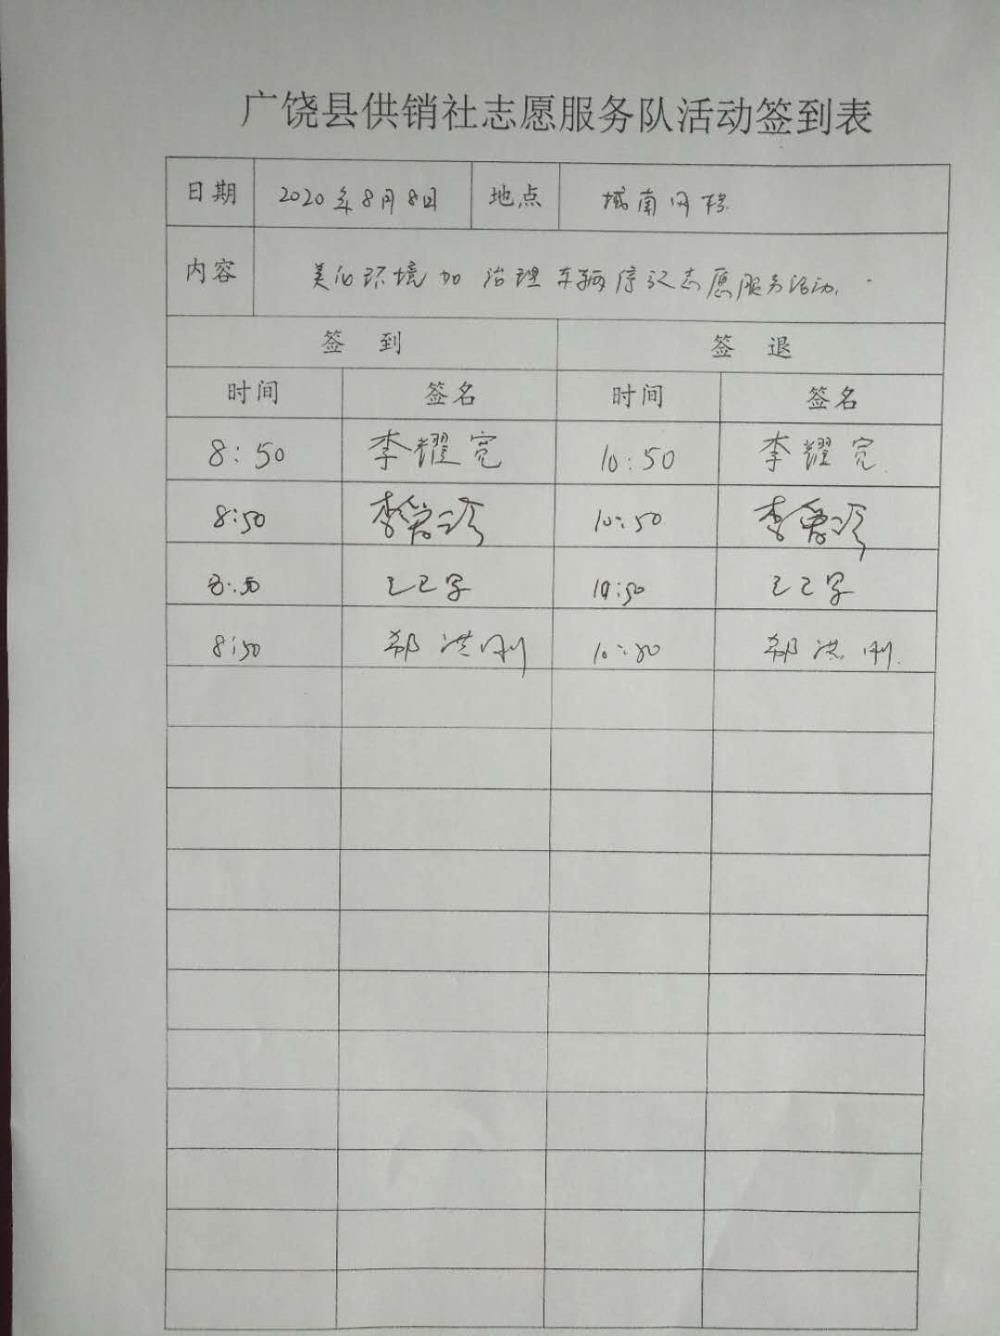 广饶县供销社志愿服务队活动签到表
日期 2020年8月8日 地点 城南网格
内容 美化环境 治理车辆停放志愿服务活动
签到 签退
时间 签名 时间 签名
8:50 李耀宽 10:50 李耀宽
8:50 10:50
8:50 10:50
8:50 郝洪刚 10:50 郝洪刚